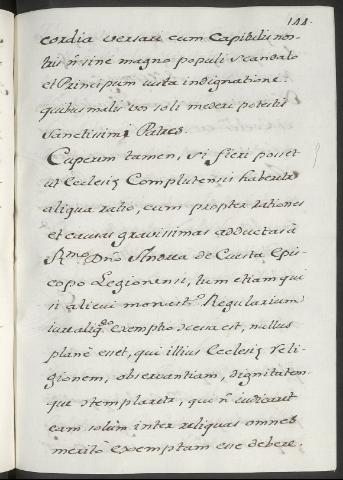 144.
cordia versari cum Capitulis nos-
tris ñ sine magno populi scandalo
et Principum iusta indignatione:
quibus malis vos soli mederi potestis
Sanctissimi Patres.
Cuperem tamen, si fieri posset
ut Ecclesię Complutensis haberetr
aliqua ratio, cum propter rationes
et causas gravissimas adductas à
Rmo Dno Andrea de Cuesta Epis-
copo Legionensi, tum etiam qui
si alicui monastro Regularium
iure aliquo exemptio decessa est, nullus
planè esset, qui illius Ecclesię reli-
gionem, observantiam, dignitatem-
que contemplaretr, qui ñ iudicaret
eam solùm inter reliquas omnes
meritò exemptam esse debere.